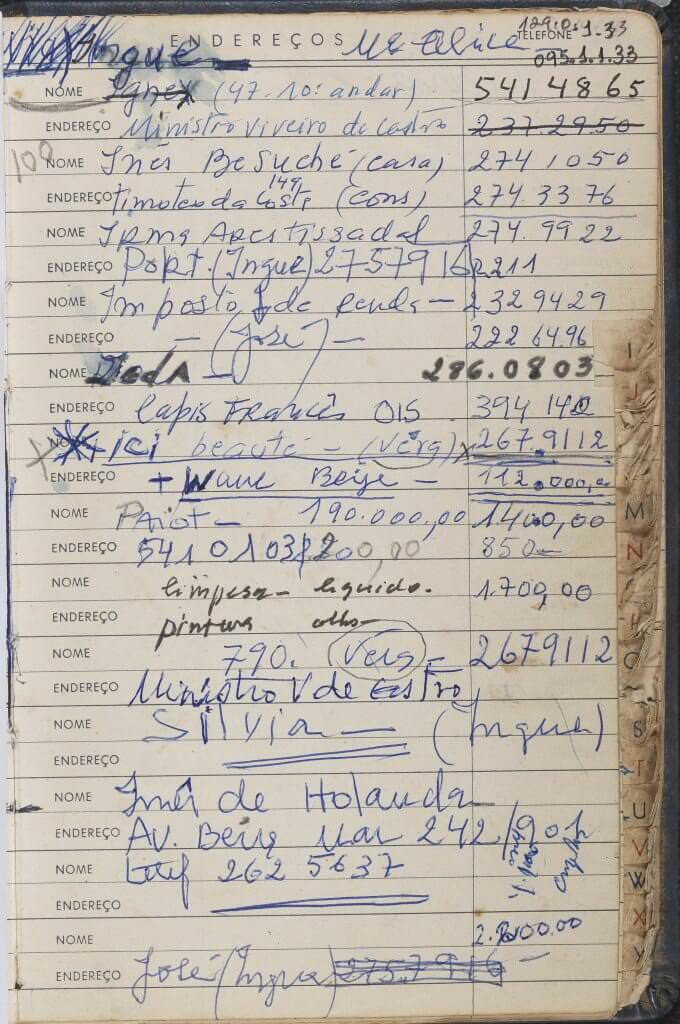 ENDEREÇOS TELEFONE
095.1.1.33
NOME (47. 10º andar) 541 4865
ENDEREÇO Ministro Viveiro de Castro 237.2950
100 NOME Inês Besuché (casa) 274 1050
ENDEREÇO Timoteo da Costa 149 (cons) 274.33 76
NOME Irma 274.9922
ENDEREÇO Port. (Ingue) 2757916 R211
NOME Imposto de renda - 232 9429
ENDEREÇO - (José) - 222 64.96
NOME DedA - 286.0803
ENDEREÇO Lapis Francês 015 394 140
NOME + ici beauté - (Verg) x 267.9112
ENDEREÇO + Wane Beije - 112.000,
NOME Paiot - 190.000,00 1400,00
ENDEREÇO 541 0103 200,00 850-
NOME limpesa - liquido. 1.700,00
ENDEREÇO pintura olho-
NOME 790. Verg - 2679112
ENDEREÇO Ministro V de Castro
NOME Silvia - (Ingue)
ENDEREÇO
NOME Inês de Holanda
ENDEREÇO Av. Beira Mar 242
NOME telef 262 5637
ENDEREÇO
NOME
ENDEREÇO José (Ingue) 275.7916 -
I
J
M
N
O
S
T
U
V
W
X
Y